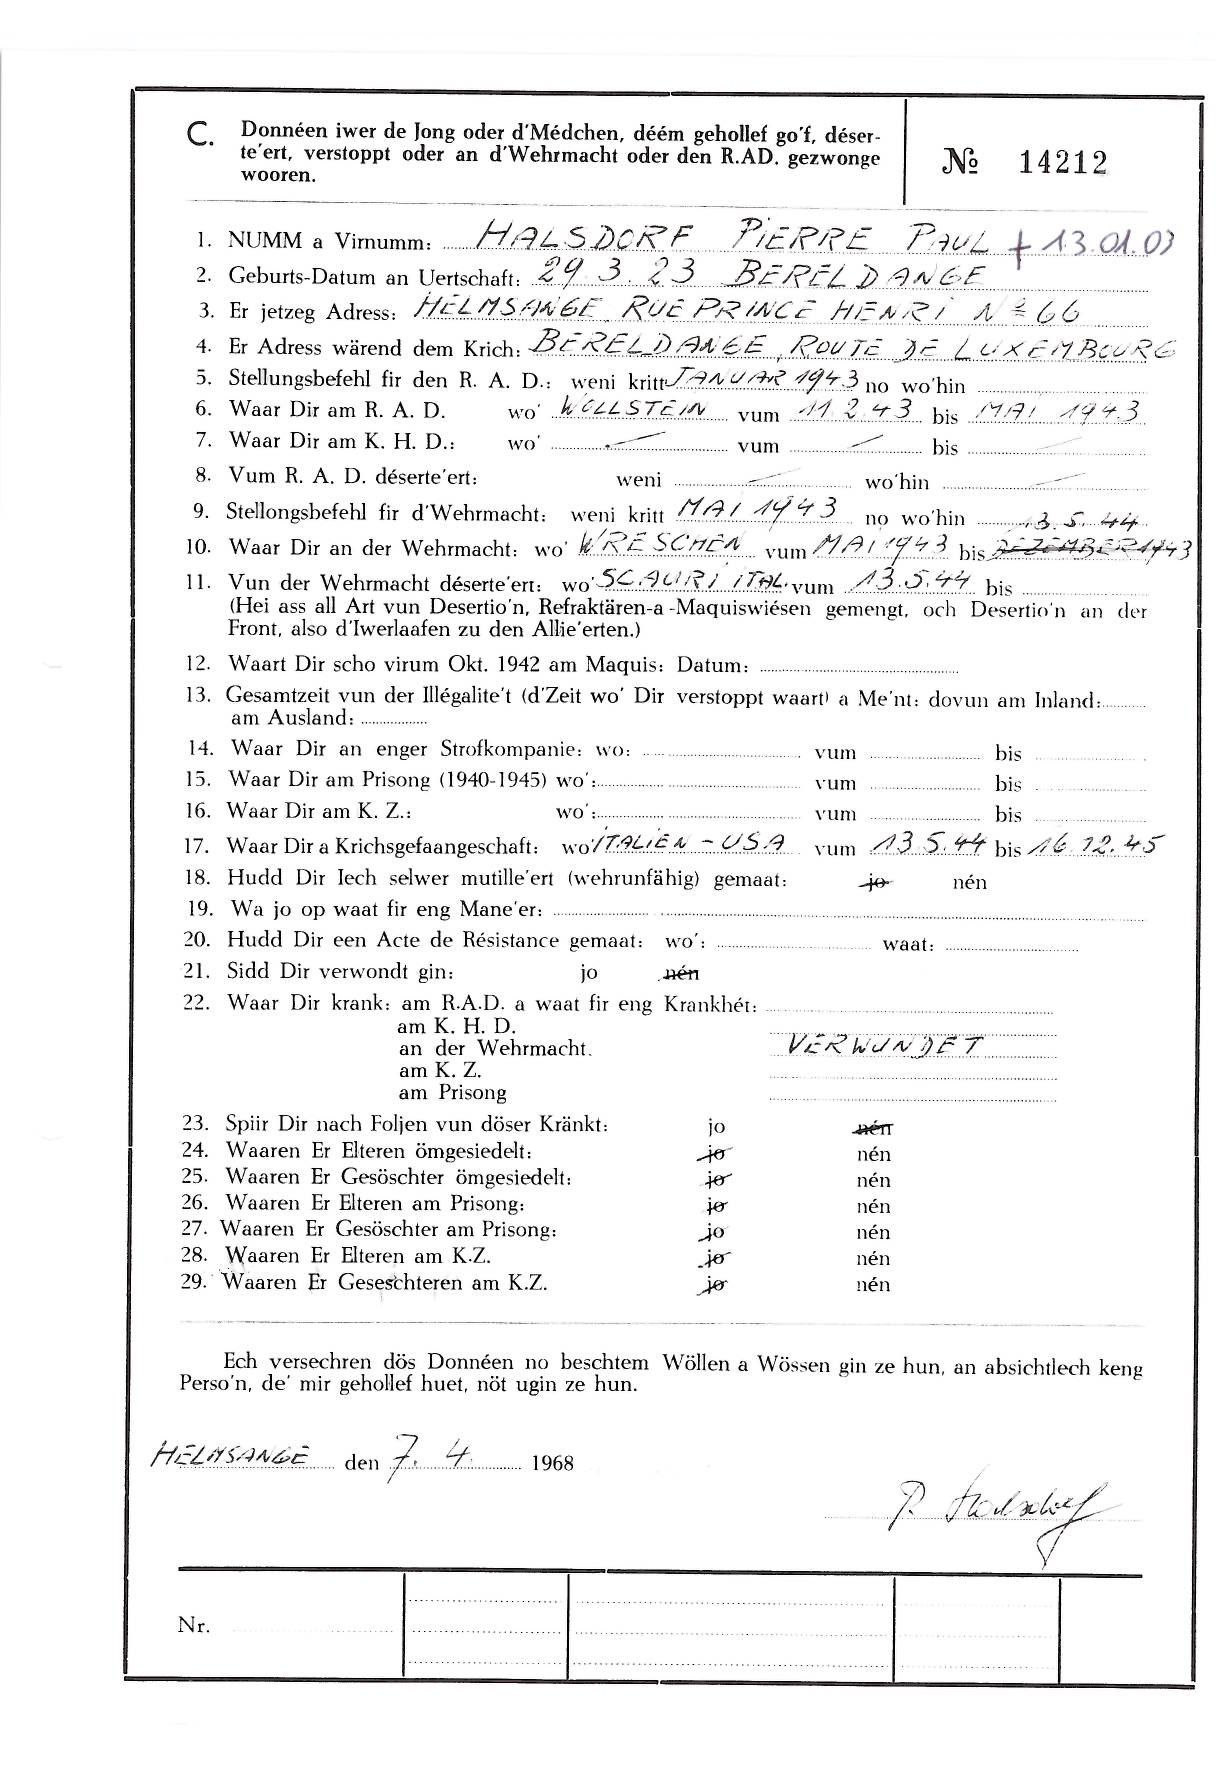 C. Donnéen iwer de Jong oder d'Médchen, déém gehollef go'f, déser-
te'ert, verstoppt oder an d'Wehrmacht oder den R.AD. gezwonge
wooren.
№ 14212
1. NUMM a Virnumm: HALSDORF PIERRE PAUL † 13.01.03
2. Geburts-Datum an Uertschaft: 29 3. 23 BERELDANGE
3. Er jetzeg Adress: HELMSANGE RUE PRINCE HENRI Nº 66
4. Er Adress wärend dem Krich: BERELDANGE, ROUTE DE LUXEMBOURG
5. Stellungsbefehl fir den R. A. D.: weni kritt JANUAR 1943 no wo'hin
6. Waar Dir am R. A. D. wo' WOLLSTEIN vum 11.2.43 bis MAI 1943
7. Waar Dir am K. H. D.: wo' — vum — bis —
8. Vum R. A. D. déserte'ert: weni — wo'hin —
9. Stellongsbefehl fir d'Wehrmacht: weni kritt MAI 1943 no wo'hin 13.5.44
10. Waar Dir an der Wehrmacht: wo' WRESCHEN vum MAI 1943 bis DEZEMBER 1943
11. Vun der Wehrmacht déserte'ert: wo' SCAURI ITAL. vum 13.5.44 bis
(Hei ass all Art vun Desertio'n, Refraktären-a-Maquiswiésen gemengt, och Desertio'n an der
Front, also d'Iwerlaafen zu den Allie'erten.)
12. Waart Dir scho virum Okt. 1942 am Maquis: Datum:
13. Gesamtzeit vun der Illégalite't (d'Zeit wo' Dir verstoppt waart) a Me'nt: dovun am Inland:
am Ausland:
14. Waar Dir an enger Strofkompanie: wo: vum bis
15. Waar Dir am Prisong (1940-1945) wo': vum bis
16. Waar Dir am K. Z.: wo': vum bis
17. Waar Dir a Krichsgefaangeschaft: wo' ITALIEN - USA vum 13.5.44 bis 16.12.45
18. Hudd Dir Iech selwer mutille'ert (wehrunfähig) gemaat: jo nén
19. Wa jo op waat fir eng Mane'er:
20. Hudd Dir een Acte de Résistance gemaat: wo': waat:
21. Sidd Dir verwondt gin: jo nén
22. Waar Dir krank: am R.A.D. a waat fir eng Krankhét:
am K. H. D.
an der Wehrmacht. VERWUNDET
am K. Z.
am Prisong
23. Spiir Dir nach Foljen vun döser Kränkt: jo nén
24. Waaren Er Elteren ömgesiedelt: jo nén
25. Waaren Er Gesöschter ömgesiedelt: jo nén
26. Waaren Er Elteren am Prisong: jo nén
27. Waaren Er Gesöschter am Prisong: jo nén
28. Waaren Er Elteren am K.Z. jo nén
29. Waaren Er Geseschteren am K.Z. jo nén
Ech versechren dös Donnéen no beschtem Wöllen a Wössen gin ze hun, an absichtlech keng
Perso'n, de' mir gehollef huet, nöt ugin ze hun.
HELMSANGE den 7. 4. 1968
P. Halsdorf
Nr.